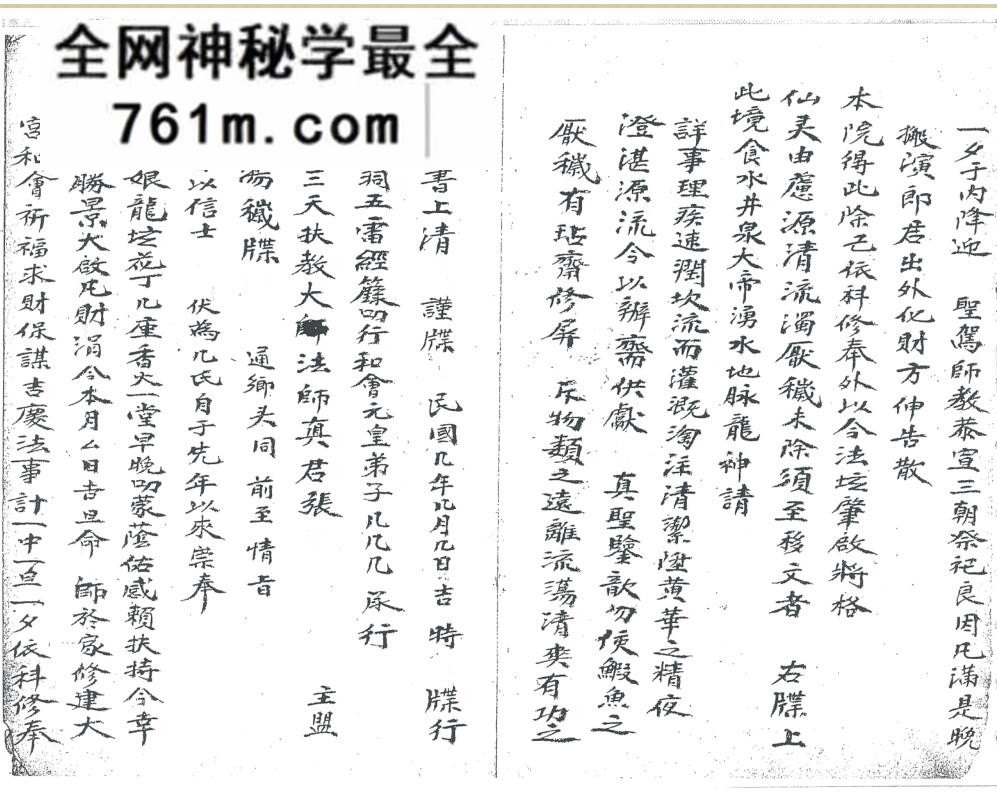 全网神秘学最全
761m.com
一夕于内降迎 聖駕師教恭宣三朝祭祀良因凡滿是晚
搬演郎君出外化財方伸告散
本院得此除已依科修奉外以今法坛肇啟將格
仙灵由慮源清流濁厭穢未除須至移文者 右牒上
此境食水井泉大帝湧水地脉龍神請
詳事理疾速潤坎流而灌溉淘注清潔陞黄華之精夜
澄湛源流令以辦齋供獻 真聖鑒歆勿使鰕魚之
厭穢有玷齋修屏 斥物類之遠離流蕩清爽有功之
書上清 謹牒 民國几年几月几日吉時 牒行
洞五雷經籙叩行和會元皇弟子几几几 承行
三天扶教大法師真君張 主盟
荡穢牒 通鄉头同 前至情旨
以信士 伏為几氏自于先年以來崇奉
娘龍坛花丁几座香火一堂早晚叩蒙蔭佑感賴扶持今幸
勝景大啟凡財涓今本月厶日吉旦命 師於家修建大
宮和會祈福求財保謀吉慶法事計一中一亘一夕依科修奉